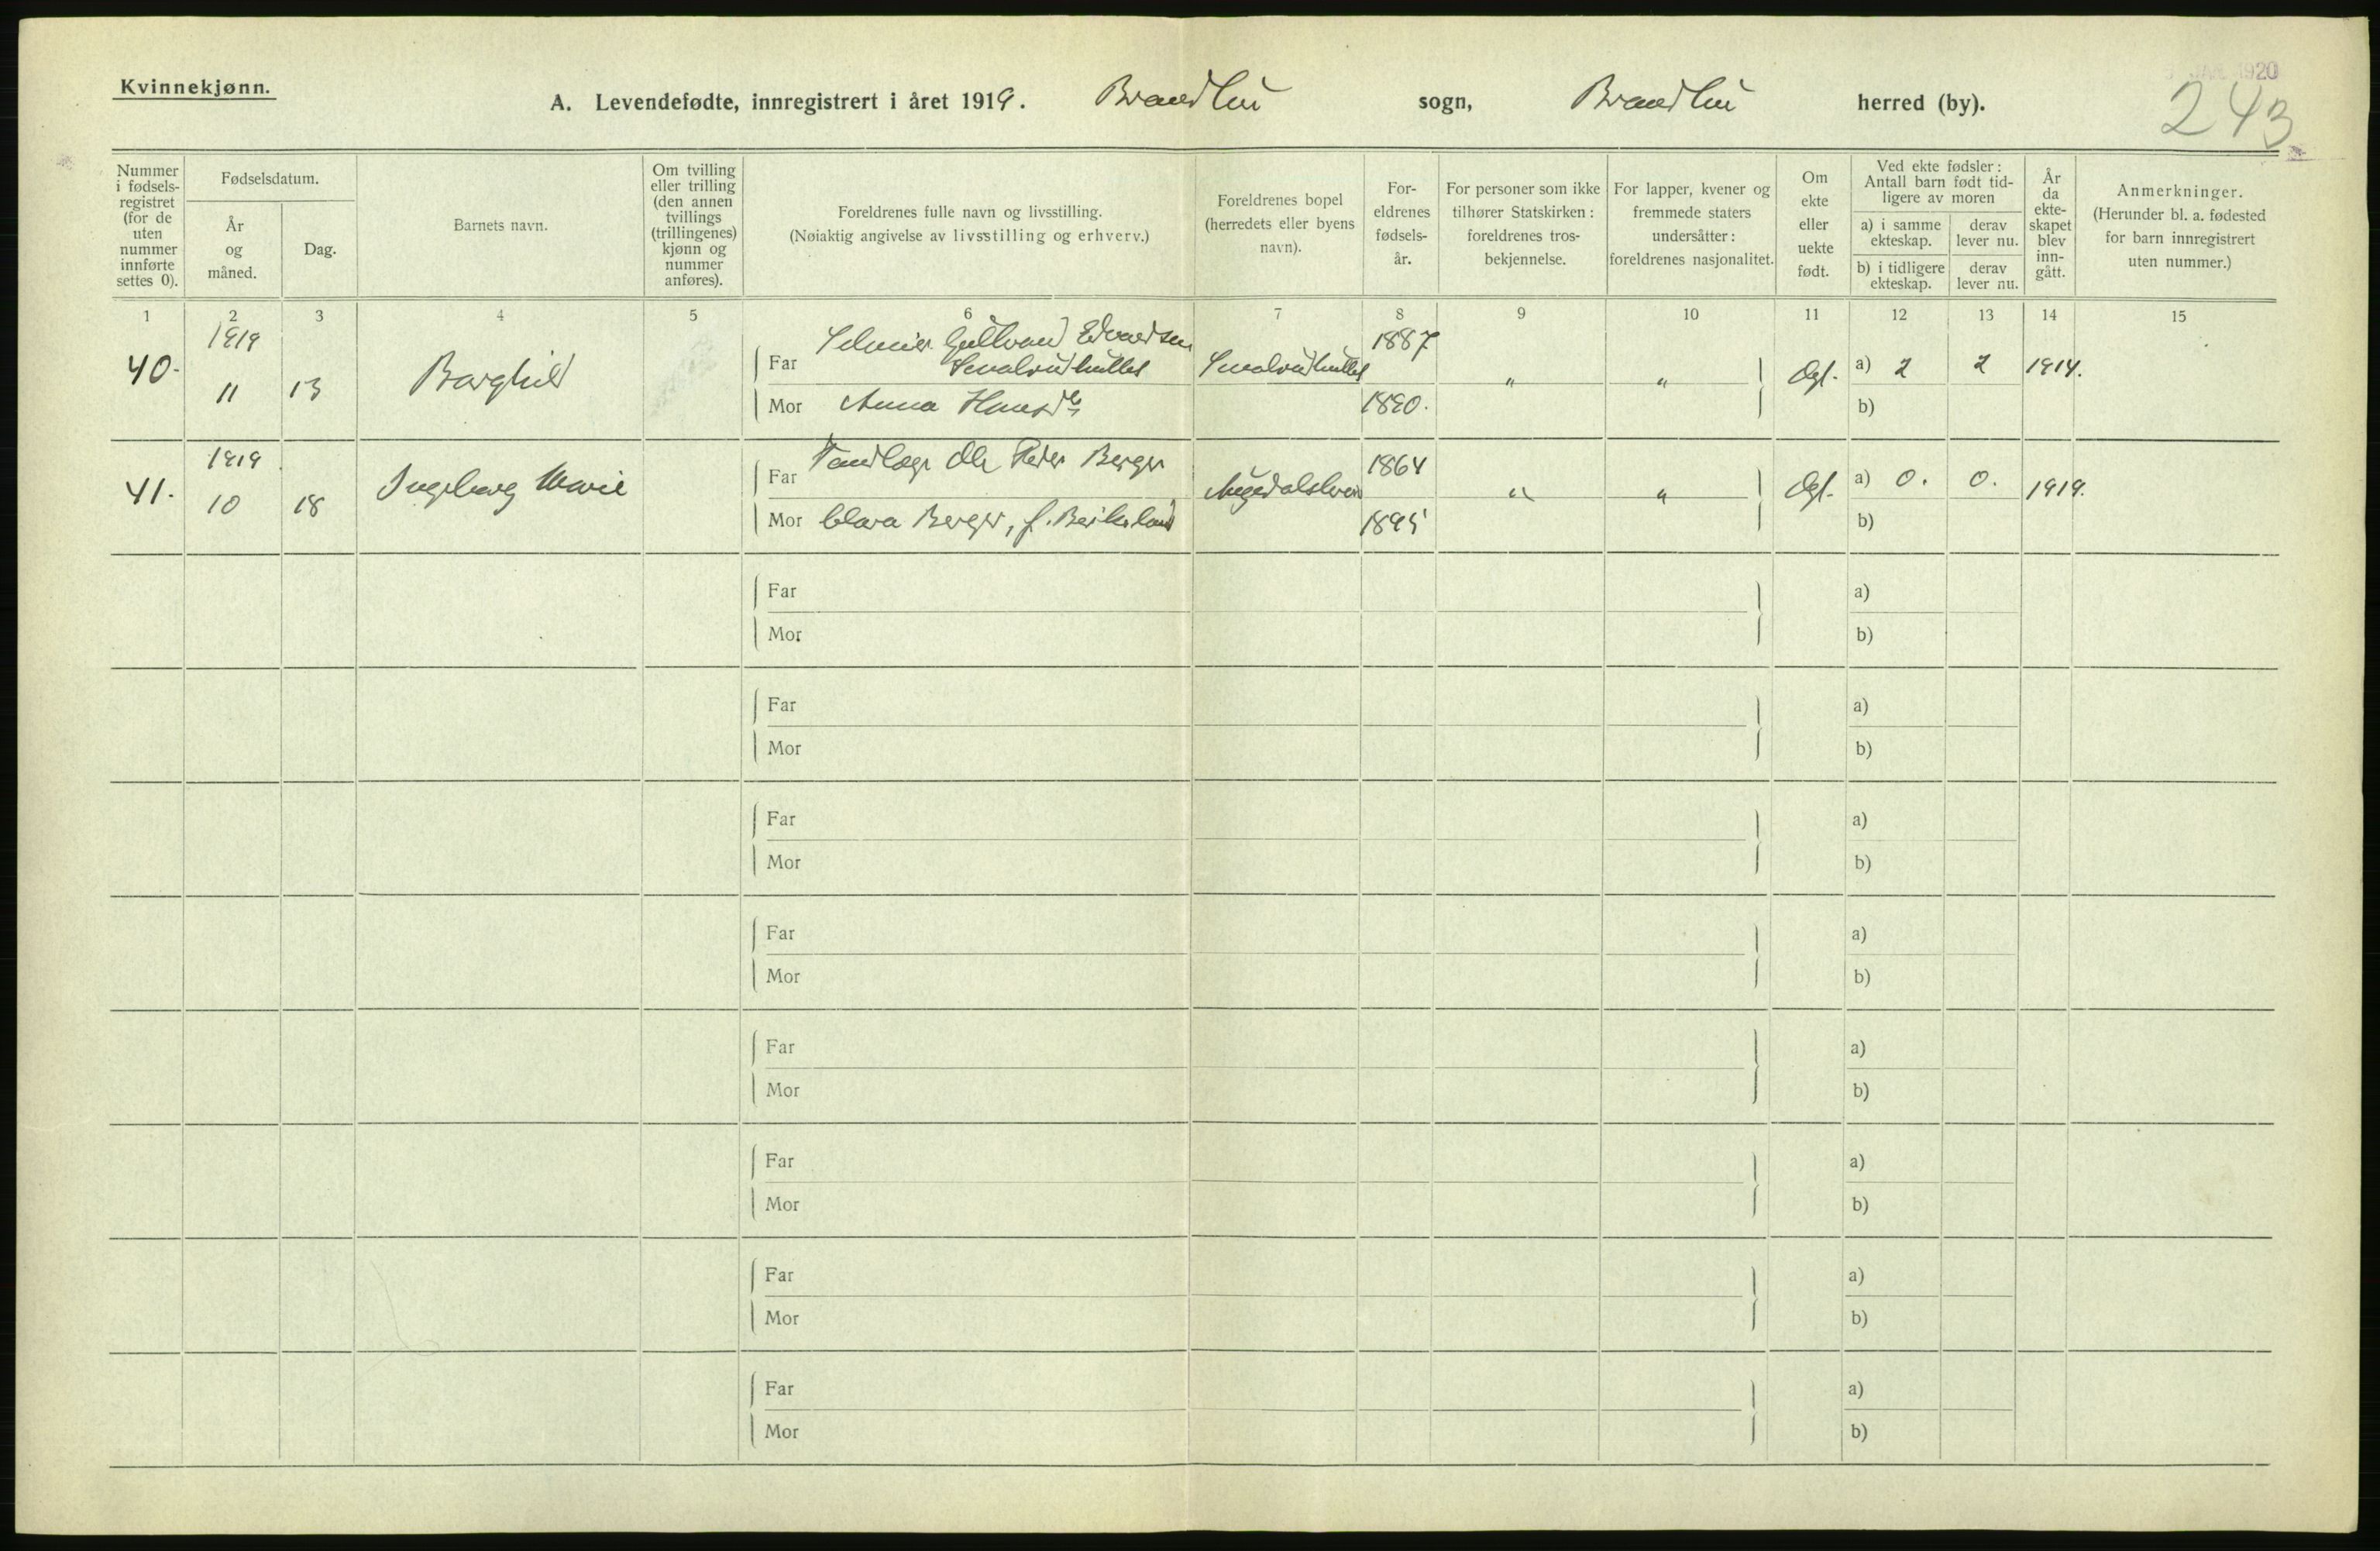 Kvinnekjønn.
A. Levendefødte, innregistrert i året 1919. Brandbu sogn, Brandbu herred (by).
JAN. 1920
243
Nummer i fødsels-registret (for de uten nummer innførte settes 0).
Fødselsdatum.
År og måned.
Dag.
Barnets navn.
Om tvilling eller trilling (den annen tvillings (trillingenes) kjønn og nummer anføres).
Foreldrenes fulle navn og livsstilling.
(Nøiaktig angivelse av livsstilling og erhverv.)
Foreldrenes bopel (herredets eller byens navn).
For-eldrenes fødsels-år.
For personer som ikke tilhører Statskirken: foreldrenes tros-bekjennelse.
For lapper, kvener og fremmede staters undersåtter: foreldrenes nasjonalitet.
Om ekte eller uekte født.
Ved ekte fødsler: Antall barn født tid-ligere av moren
a) i samme ekteskap.
derav lever nu.
b) i tidligere ekteskap.
derav lever nu.
År da ekte-skapet blev inn-gått.
Anmerkninger.
(Herunder bl. a. fødested for barn innregistrert uten nummer.)
1 2 3 4 5 6 7 8 9 10 11 12 13 14 15
40. 1919 11 13 Borghild
Far Edvardsen 1887 " " a) 2 2 1914.
Mor Anna 1890. b)
41. 1919 10 18 Ingeborg Marie
Far Tandlæge Ole Peder Berger 1864 " " a) 0. 0. 1919.
Mor Clara Berger, f. 1895 b)
Far a)
Mor b)
Far a)
Mor b)
Far a)
Mor b)
Far a)
Mor b)
Far a)
Mor b)
Far a)
Mor b)
Far a)
Mor b)
Far a)
Mor b)